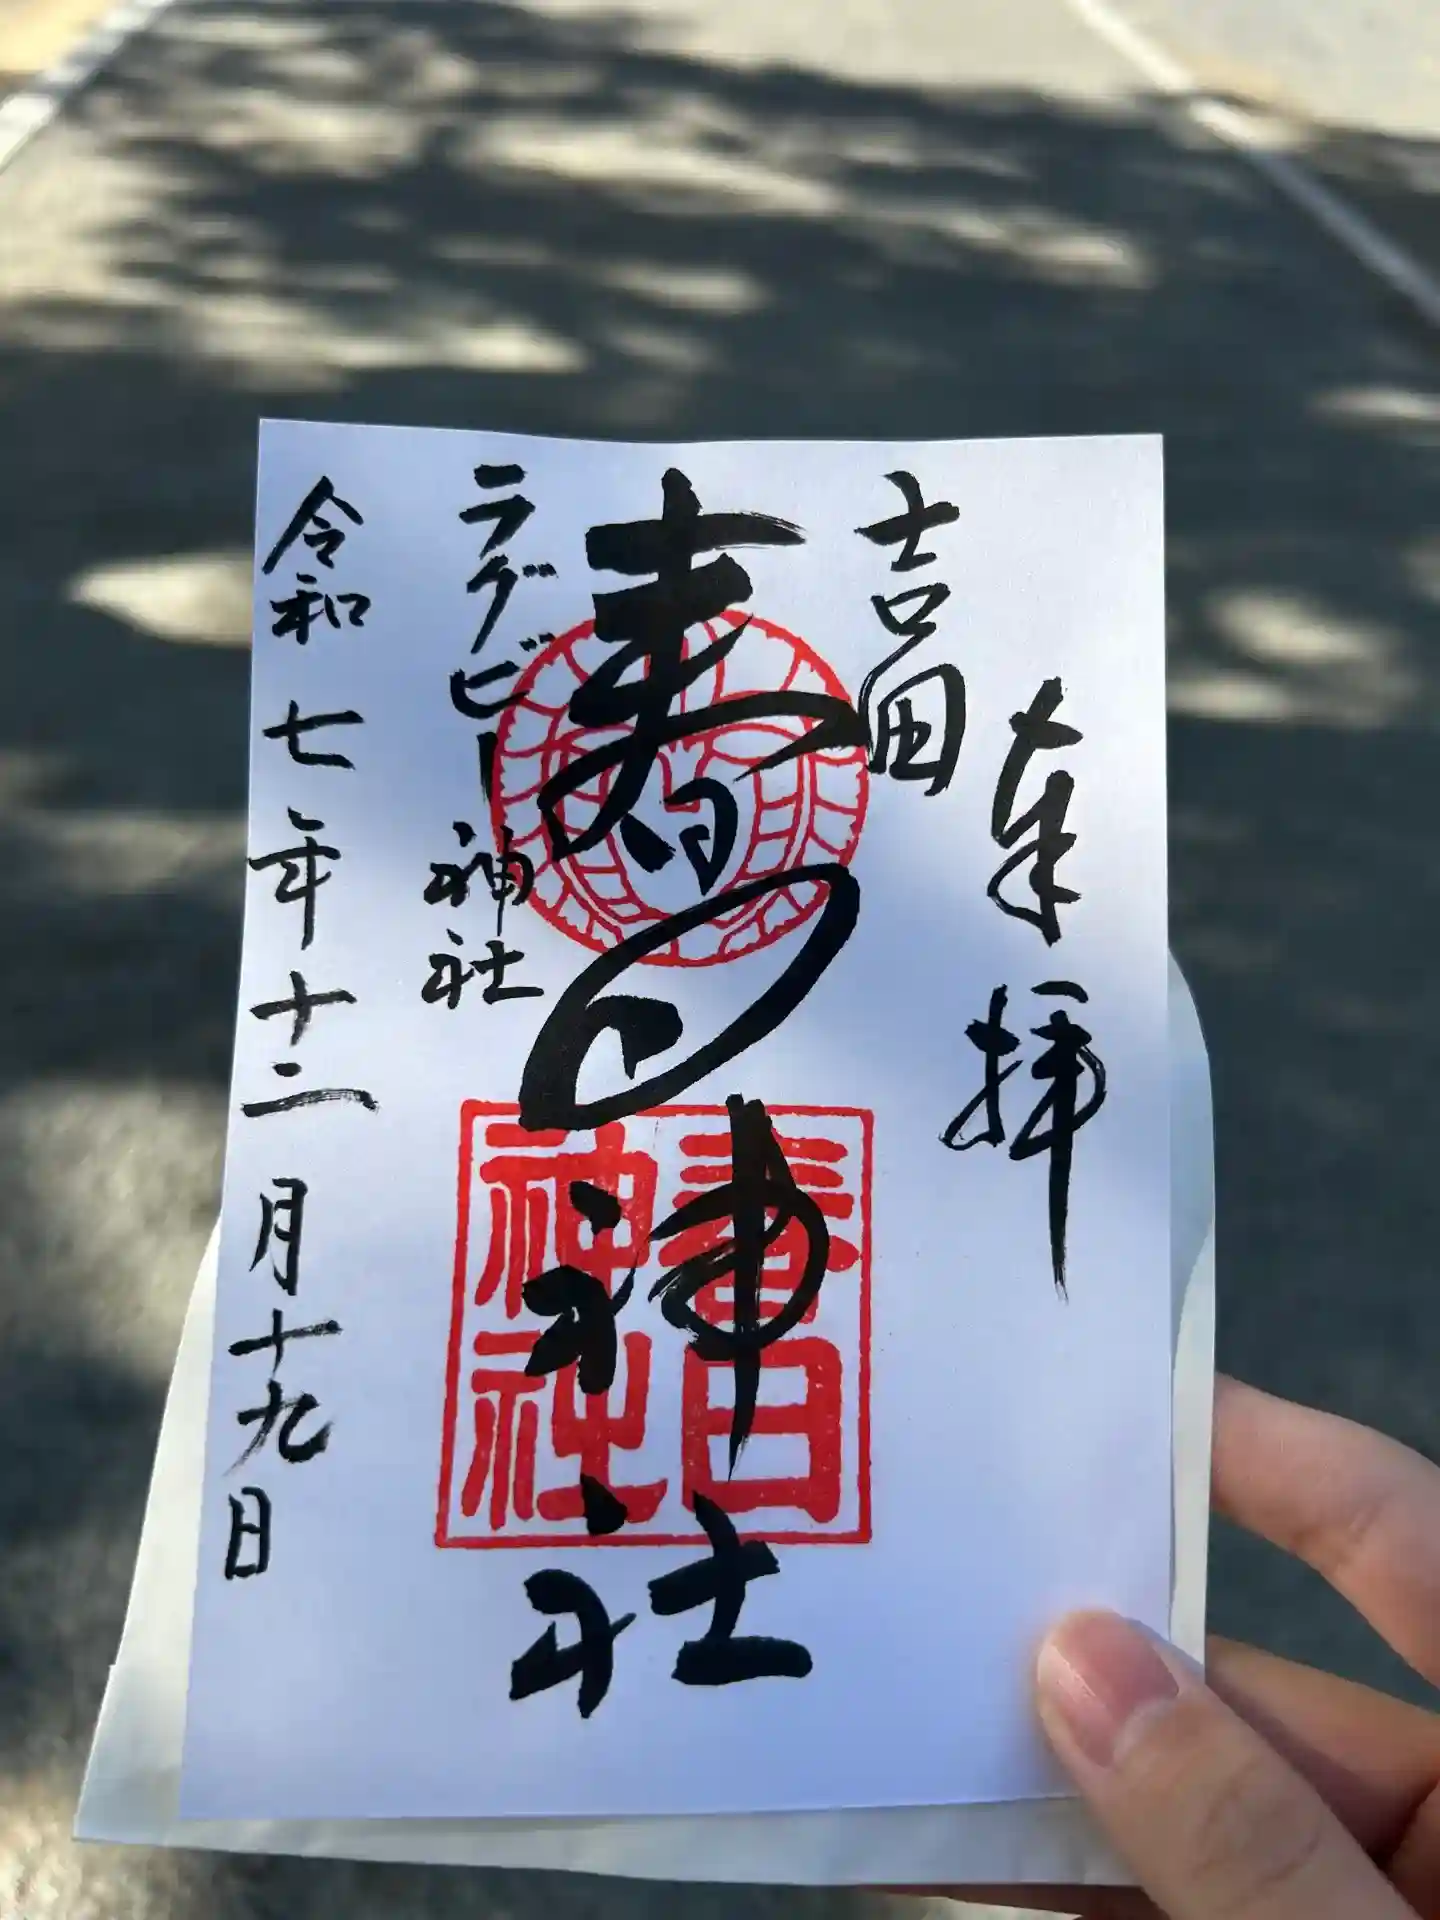 奉拝
吉田
春日神社
ラグビー神社
令和七年十二月十九日
春日
神社